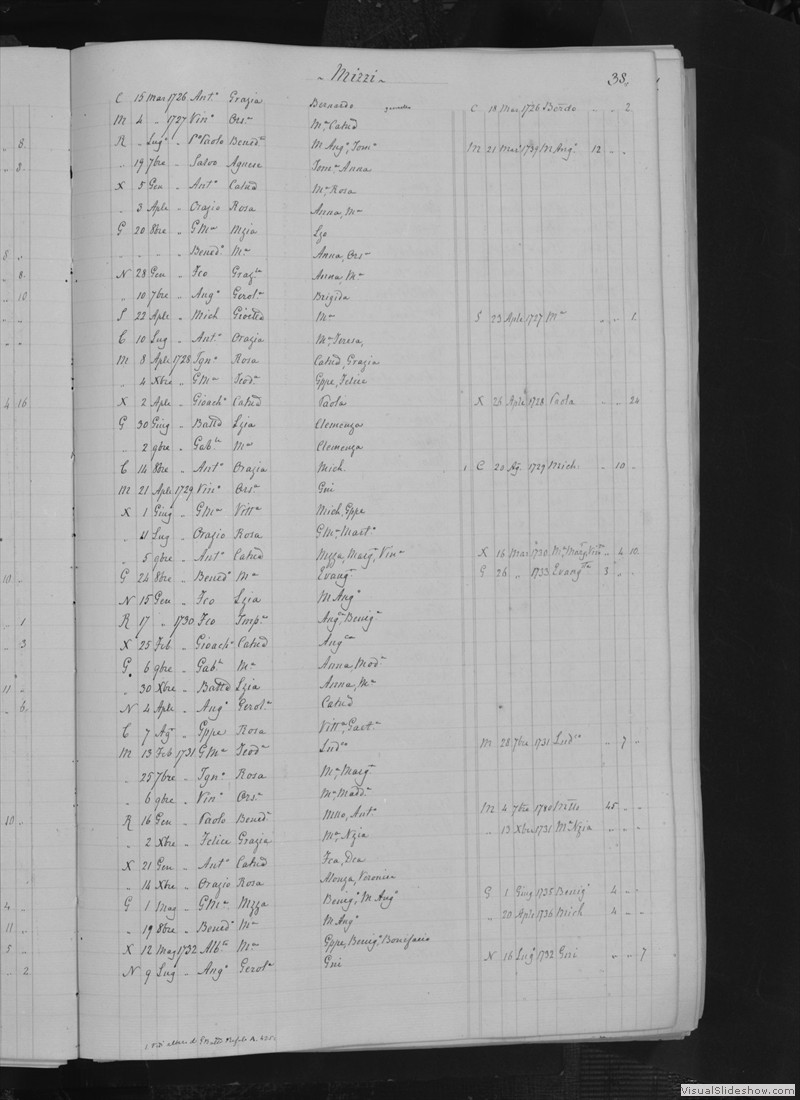 Mizzi 38.
C 15 Mar 1726 Ant.ᵃ Grazia Bernardo gemelli C 18 Mar 1726 Bendo „ „ 2
M 4 „ 1727 Vin.ᵒ Ors.ᵃ M.ᵃ Catnd
R „ Lug.ᵒ „ P.ᵒ Paolo Bened.ᵃ M Ang.ᵃ, Tom.ᵃ M 21 Mar 1739 M Ang.ᵃ 12 „ „
„ 19 7bre „ Salvo Agnese Tom.ᵃ Anna
X 5 Gen „ Ant.ᵒ Catnd M.ᵃ Rosa
„ 3 Aple „ Orazio Rosa Anna, M.ᵃ
G 20 8bre „ G M.ᵃ Mzia Lzo
„ „ „ „ Bened.ᵒ M.ᵃ Anna, Ors.ᵃ
N 28 Gen „ Fco Graz.ᵃ Anna, M.ᵃ
„ 10 7bre „ Ang.ᵒ Gerol.ᵃ Brigida
S 22 Aple „ Mich Gioetta M.ᵃ S 23 Aple 1727 M.ᵃ „ „ 1
C 10 Lug „ Ant.ᵒ Orazia M.ᵃ Teresa,
M 8 Aple 1728 Ign.ᵒ Rosa Catnd, Grazia
„ 4 Xbre „ G M.ᵃ Teod.ᵃ Gppe, Felice
X 2 Aple „ Gioach.ᵒ Catnd Paola X 26 Aple 1728 Paola „ „ 24
G 30 Giug „ Battd Lzia Clemenza
„ 2 9bre „ Gab.ˡᵉ M.ᵃ Clemenza
C 14 8bre „ Ant.ᵒ Orazia Mich. 1 C 20 Ag. 1729 Mich. „ 10 „
M 21 Aple 1729 Vin.ᵒ Ors.ᵃ Gni
X 1 Giug „ G M.ᵃ Vitt.ᵃ Mich, Gppe
„ 4 Lug „ Orazio Rosa G M.ᵃ Mart.ᵒ
„ 5 9bre „ Ant.ᵒ Catnd Mzza, Marg.ᵃ, Vin.ᵃ X 16 Mar 1730 M.ᵃ Marg.ᵃ Vitt.ᵃ „ 4 10
G 24 8bre „ Bened.ᵒ M.ᵃ Evang.ᵃ G 26 „ 1733 Evang.ᵗᵃ 3 „ „
N 15 Gen „ Fco Lzia M Ang.ᵒ
R 17 „ 1730 Fco Imp.ᵃ Ang.ᵃ, Benig.ᵃ
X 25 Feb „ Gioach.ᵒ Catnd Ang.ᶜᵃ
G 6 9bre „ Gab.ˡᵉ M.ᵃ Anna, Mod.ᵃ
„ 30 Xbre „ Battd Lzia Anna, M.ᵃ
N 4 Aple „ Ang.ᵒ Gerol.ᵃ Catnd
C 7 Ag. „ Gppe Rosa Vitt.ᵃ, Gaet.ᵃ
M 13 Feb 1731 G M.ᵃ Teod.ᵃ Lud.ᶜᵒ M 28 7bre 1731 Lud.ᶜᵒ „ 7 „
„ 25 7bre „ Ign.ᵒ Rosa M.ᵃ, Marg.ᵃ
„ 6 9bre „ Vin.ᵒ Ors.ᵃ M.ᵃ, Madd.ᵃ
R 16 Gen „ Paolo Bened.ᵃ Mno, Ant.ᵒ M 4 7bre 45 „ „
„ 2 Xbre „ Felice Grazia M.ᵃ, Nzia „ 13 Xbre 1731 M.ᵃ Nzia „ „ „
X 21 Gen „ Ant.ᵒ Catnd Fca, Dea
„ 14 Xbre „ Orazio Rosa Alonza, Veronica
G 1 Mag „ G M.ᵃ Mzza Benig.ᵒ, M Ang.ᵒ G 1 Giug 1735 Benig.ᵒ 4 „ „
„ 19 8bre „ Bened.ᵒ M.ᵃ M Ang.ᵒ „ 20 Aple 1736 Mich 4 „ „
X 12 Mag 1732 Alb.ᵗᵒ M.ᵃ Gppe, Benig.ᵒ Bonifacio
N 9 Lug „ Ang.ᵒ Gerol.ᵃ Gni N 16 Lug 1732 Gni „ „ 7
VisualSlideshow.com